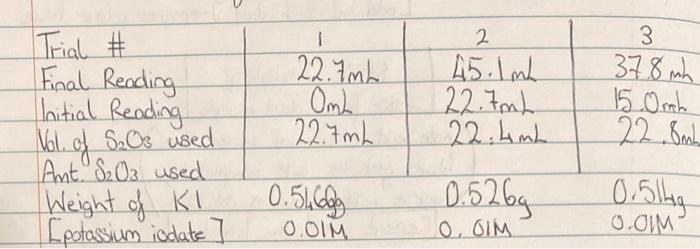 Trial # 1 2 3
Final Reading 22.7mL 45.1mL 37.8mL
Initial Reading 0mL 22.7mL 15.0mL
Vol. of S2O3 used 22.7mL 22.4mL 22.8mL
Amt. S2O3 used
Weight of KI 0.526g 0.514g
[potassium iodate] 0.01M 0.01M 0.01M